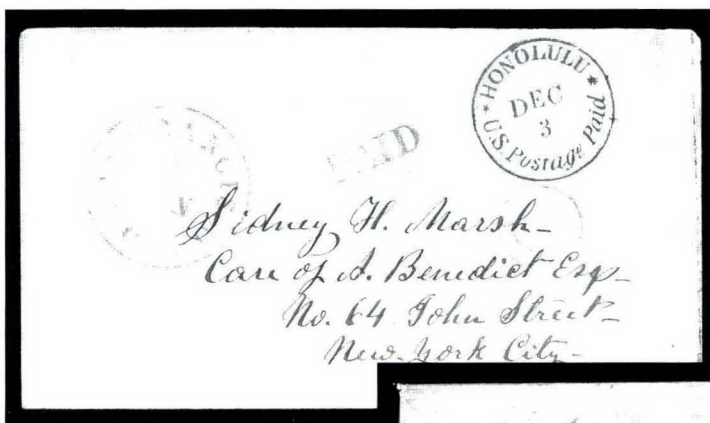 * HONOLULU *
DEC
3
U.S. Postage Paid
PAID
Sidney H. Marsh
Care of A. Benedict Esq
No. 64 John Street
New York City